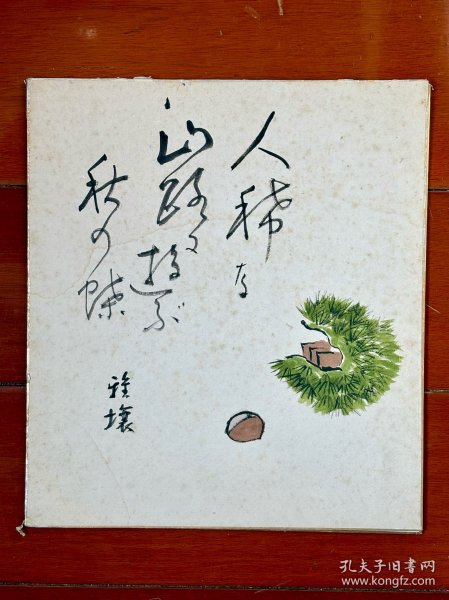 人稀な
山路に遊ぶ
秋の蝶
雅壌
孔夫子旧书网
www.kongfz.com